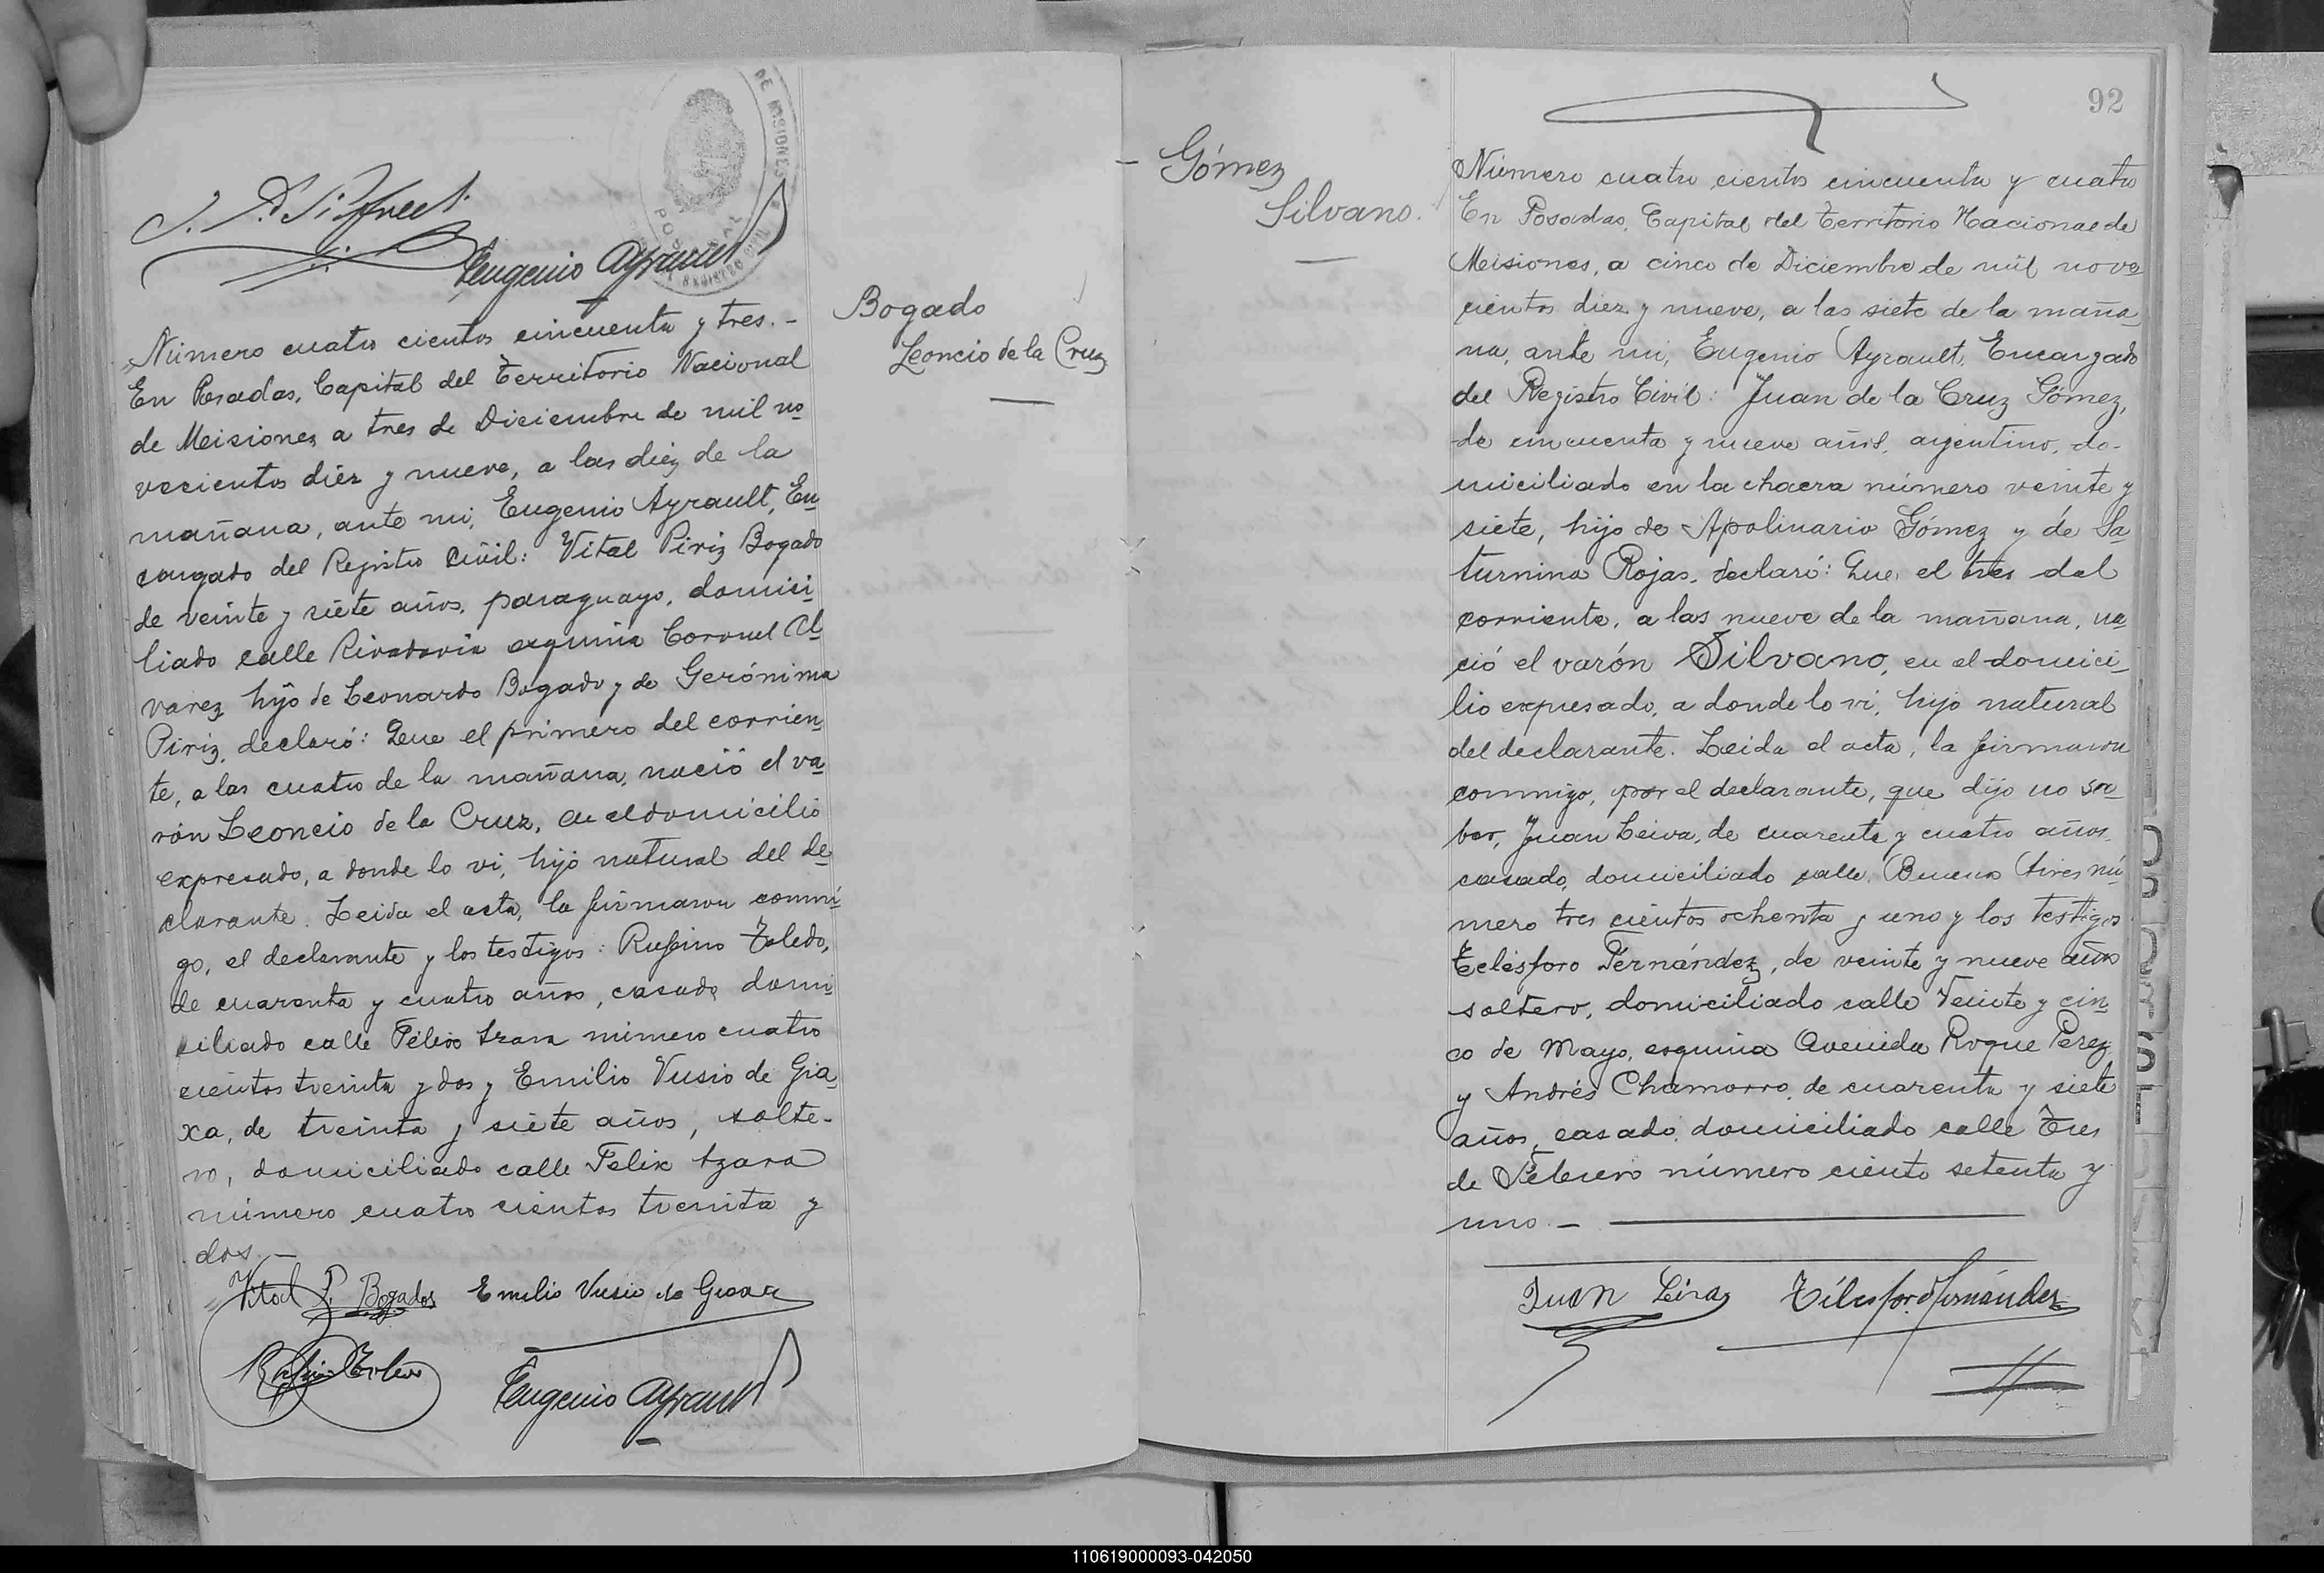 DE MISIONES
POSADAS
REGISTRO CIVIL
Eugenio Ayrault
Número cuatro cientos cincuenta y tres.-
En Posadas, Capital del Territorio Nacional
de Misiones, a tres de Diciembre de mil no
vecientos diez y nueve, a las diez de la
mañana, ante mi, Eugenio Ayrault, En
cargado del Registro Civil: Vital Piriz Bogado
de veinte y siete años, paraguayo, domici
liado calle Rivadavia esquina Coronel Al
varez, hijo de Leonardo Bogado y de Gerónima
Piriz, declaró: Que el primero del corrien
te, a las cuatro de la mañana, nació el va
rón Leoncio de la Cruz, en el domicilio
expresado, a donde lo vi, hijo natural del de
clarante. Leida el acta, la firmaron conmi
go, el declarante y los testigos: Rufino Toledo,
de cuarenta y cuatro años, casado, domi
ciliado calle Félix Azara número cuatro
cientos treinta y dos y Emilio Vusio de Gia
xa, de treinta y siete años, solte-
ro, domiciliado calle Felix Azara
número cuatro cientos treinta y
dos.-
Vital P. Bogado Emilio Vusio de Giaxa
Rufino Toledo Eugenio Ayrault
Bogado
Leoncio de la Cruz
92
Gómez
Silvano.
Número cuatro cientos cincuenta y cuatro
En Posadas, Capital del Territorio Nacional de
Misiones, a cinco de Diciembre de mil nove
cientos diez y nueve, a las siete de la maña
na, ante mi, Eugenio Ayrault, Encargado
del Registro Civil: Juan de la Cruz Gómez,
de cincuenta y nueve años, argentino, do-
miciliado en la chacra número veinte y
siete, hijo de Apolinario Gómez y de Sa
turnina Rojas, declaró: Que, el tres del
corriente, a las nueve de la mañana, na
ció el varón Silvano, en el domici
lio expresado, a donde lo vi, hijo natural
del declarante. Leida el acta, la firmaron
conmigo, por el declarante, que dijo no sa
ber, Juan Leiva, de cuarenta y cuatro años,
casado, domiciliado calle Buenos Aires nú
mero tres cientos ochenta y uno y los testigos
Telésforo Fernández, de veinte y nueve años
soltero, domiciliado calle Veinte y cin
co de Mayo, esquina Avenida Roque Perez
y Andrés Chamorro, de cuarenta y siete
años, casado, domiciliado calle Tres
de Febrero número ciento setenta y
uno.-
Juan Leiva Télesforo Fernández
110619000093-042050